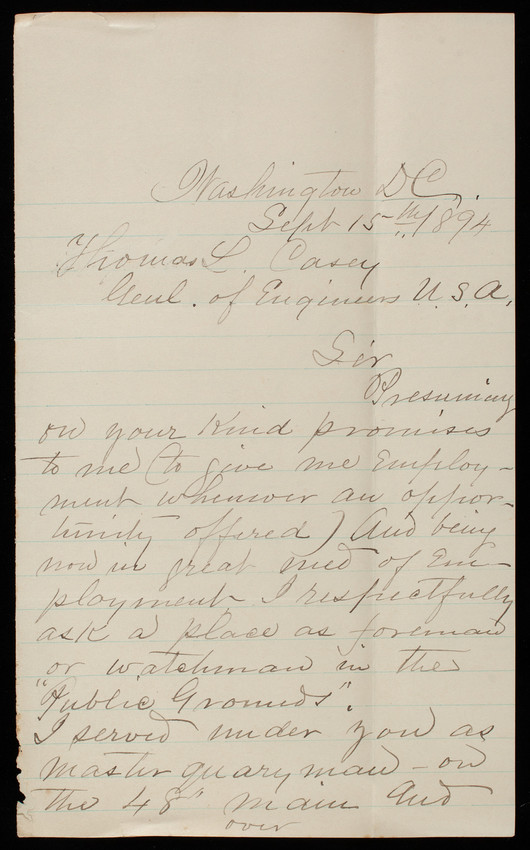 Washington D.C.
Sept 15th 1894
Thomas L. Casey
Genl. of Engineers U.S.A.
Sir
Presuming
on your kind promises
to me (to give me employ-
ment whenever an oppor-
tunity offered) And being
now in great need of Em-
ployment, I respectfully
ask a place as foreman
or watchman in the
"Public Grounds".
I served under you as
master quaryman - on
the 48" main and
over